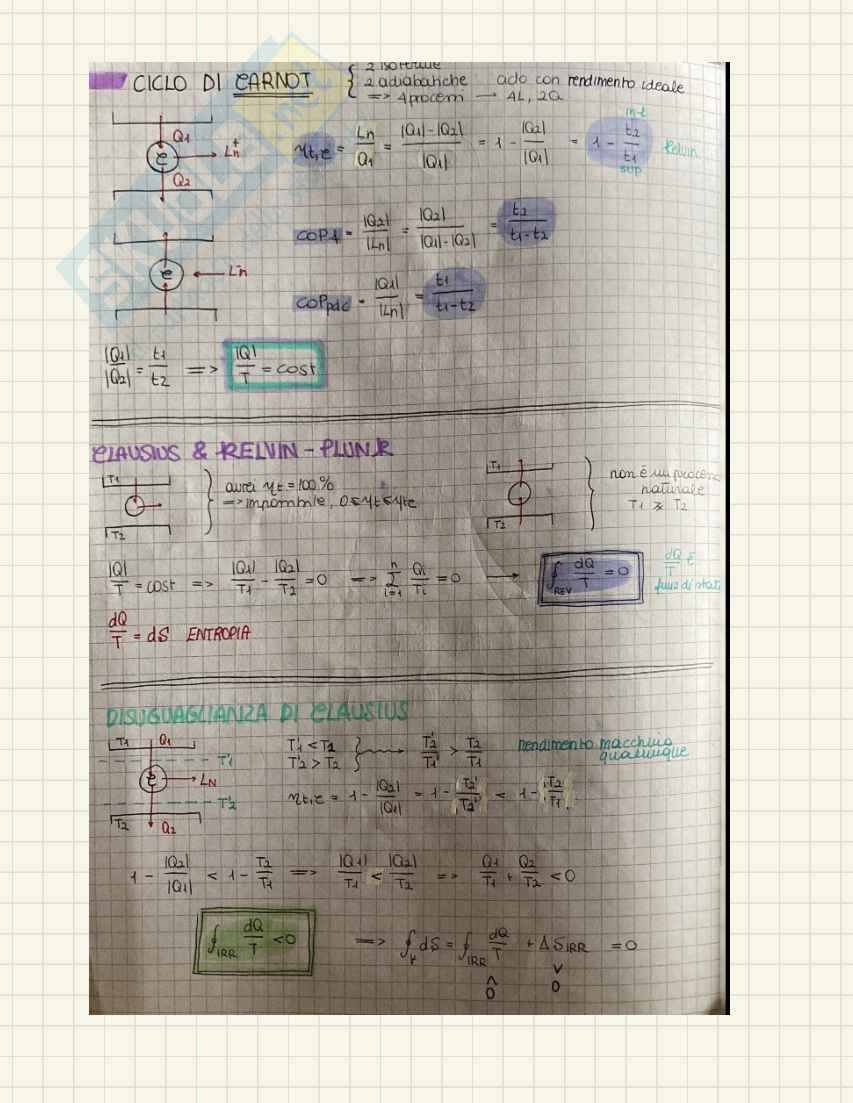 CICLO DI CARNOT
2 isoterme
2 adiabatiche
=> 4 processi → 4L, 2Q
ciclo con rendimento ideale
Q1
Ln+
Q2
ηt,c = Ln/Q1 = (|Q1|-|Q2|)/|Q1| = 1 - |Q2|/|Q1| = 1 - t2/t1
inf
sup
Kelvin
COPf = |Q2|/|Ln| = |Q2|/(|Q1|-|Q2|) = t2/(t1-t2)
Ln-
COPpdc = |Q1|/|Ln| = t1/(t1-t2)
|Q1|/|Q2| = t1/t2 => |Q|/T = cost
CLAUSIUS & KELVIN-PLUNK
T1
T2
avrei ηt = 100%
=> impossibile, 0≤ηt≤ηtc
T1
T2
non è un processo
naturale
T1 > T2
|Q|/T = cost => |Q1|/T1 - |Q2|/T2 = 0 => Σ i=1 n Qi/Ti = 0 → ∮REV dQ/T = 0
dQ/T è
funz di stato
dQ/T = dS ENTROPIA
DISUGUAGLIANZA DI CLAUSIUS
T1 Q1
T'1
LN
T'2
T2 Q2
T'1 < T2
T'2 > T2
T'2/T'1 > T2/T1
rendimento macchina
qualunque
ηt,c = 1 - |Q2|/|Q1| = 1 - T2'/T2' < 1 - T2/T1
1 - |Q2|/|Q1| < 1 - T2/T1 => |Q1|/T1 < |Q2|/T2 => Q1/T1 + Q2/T2 < 0
∮IRR dQ/T < 0 => ∮ dS = ∮IRR dQ/T + ΔSIRR = 0
^ v
0 0
SKUOLA.net